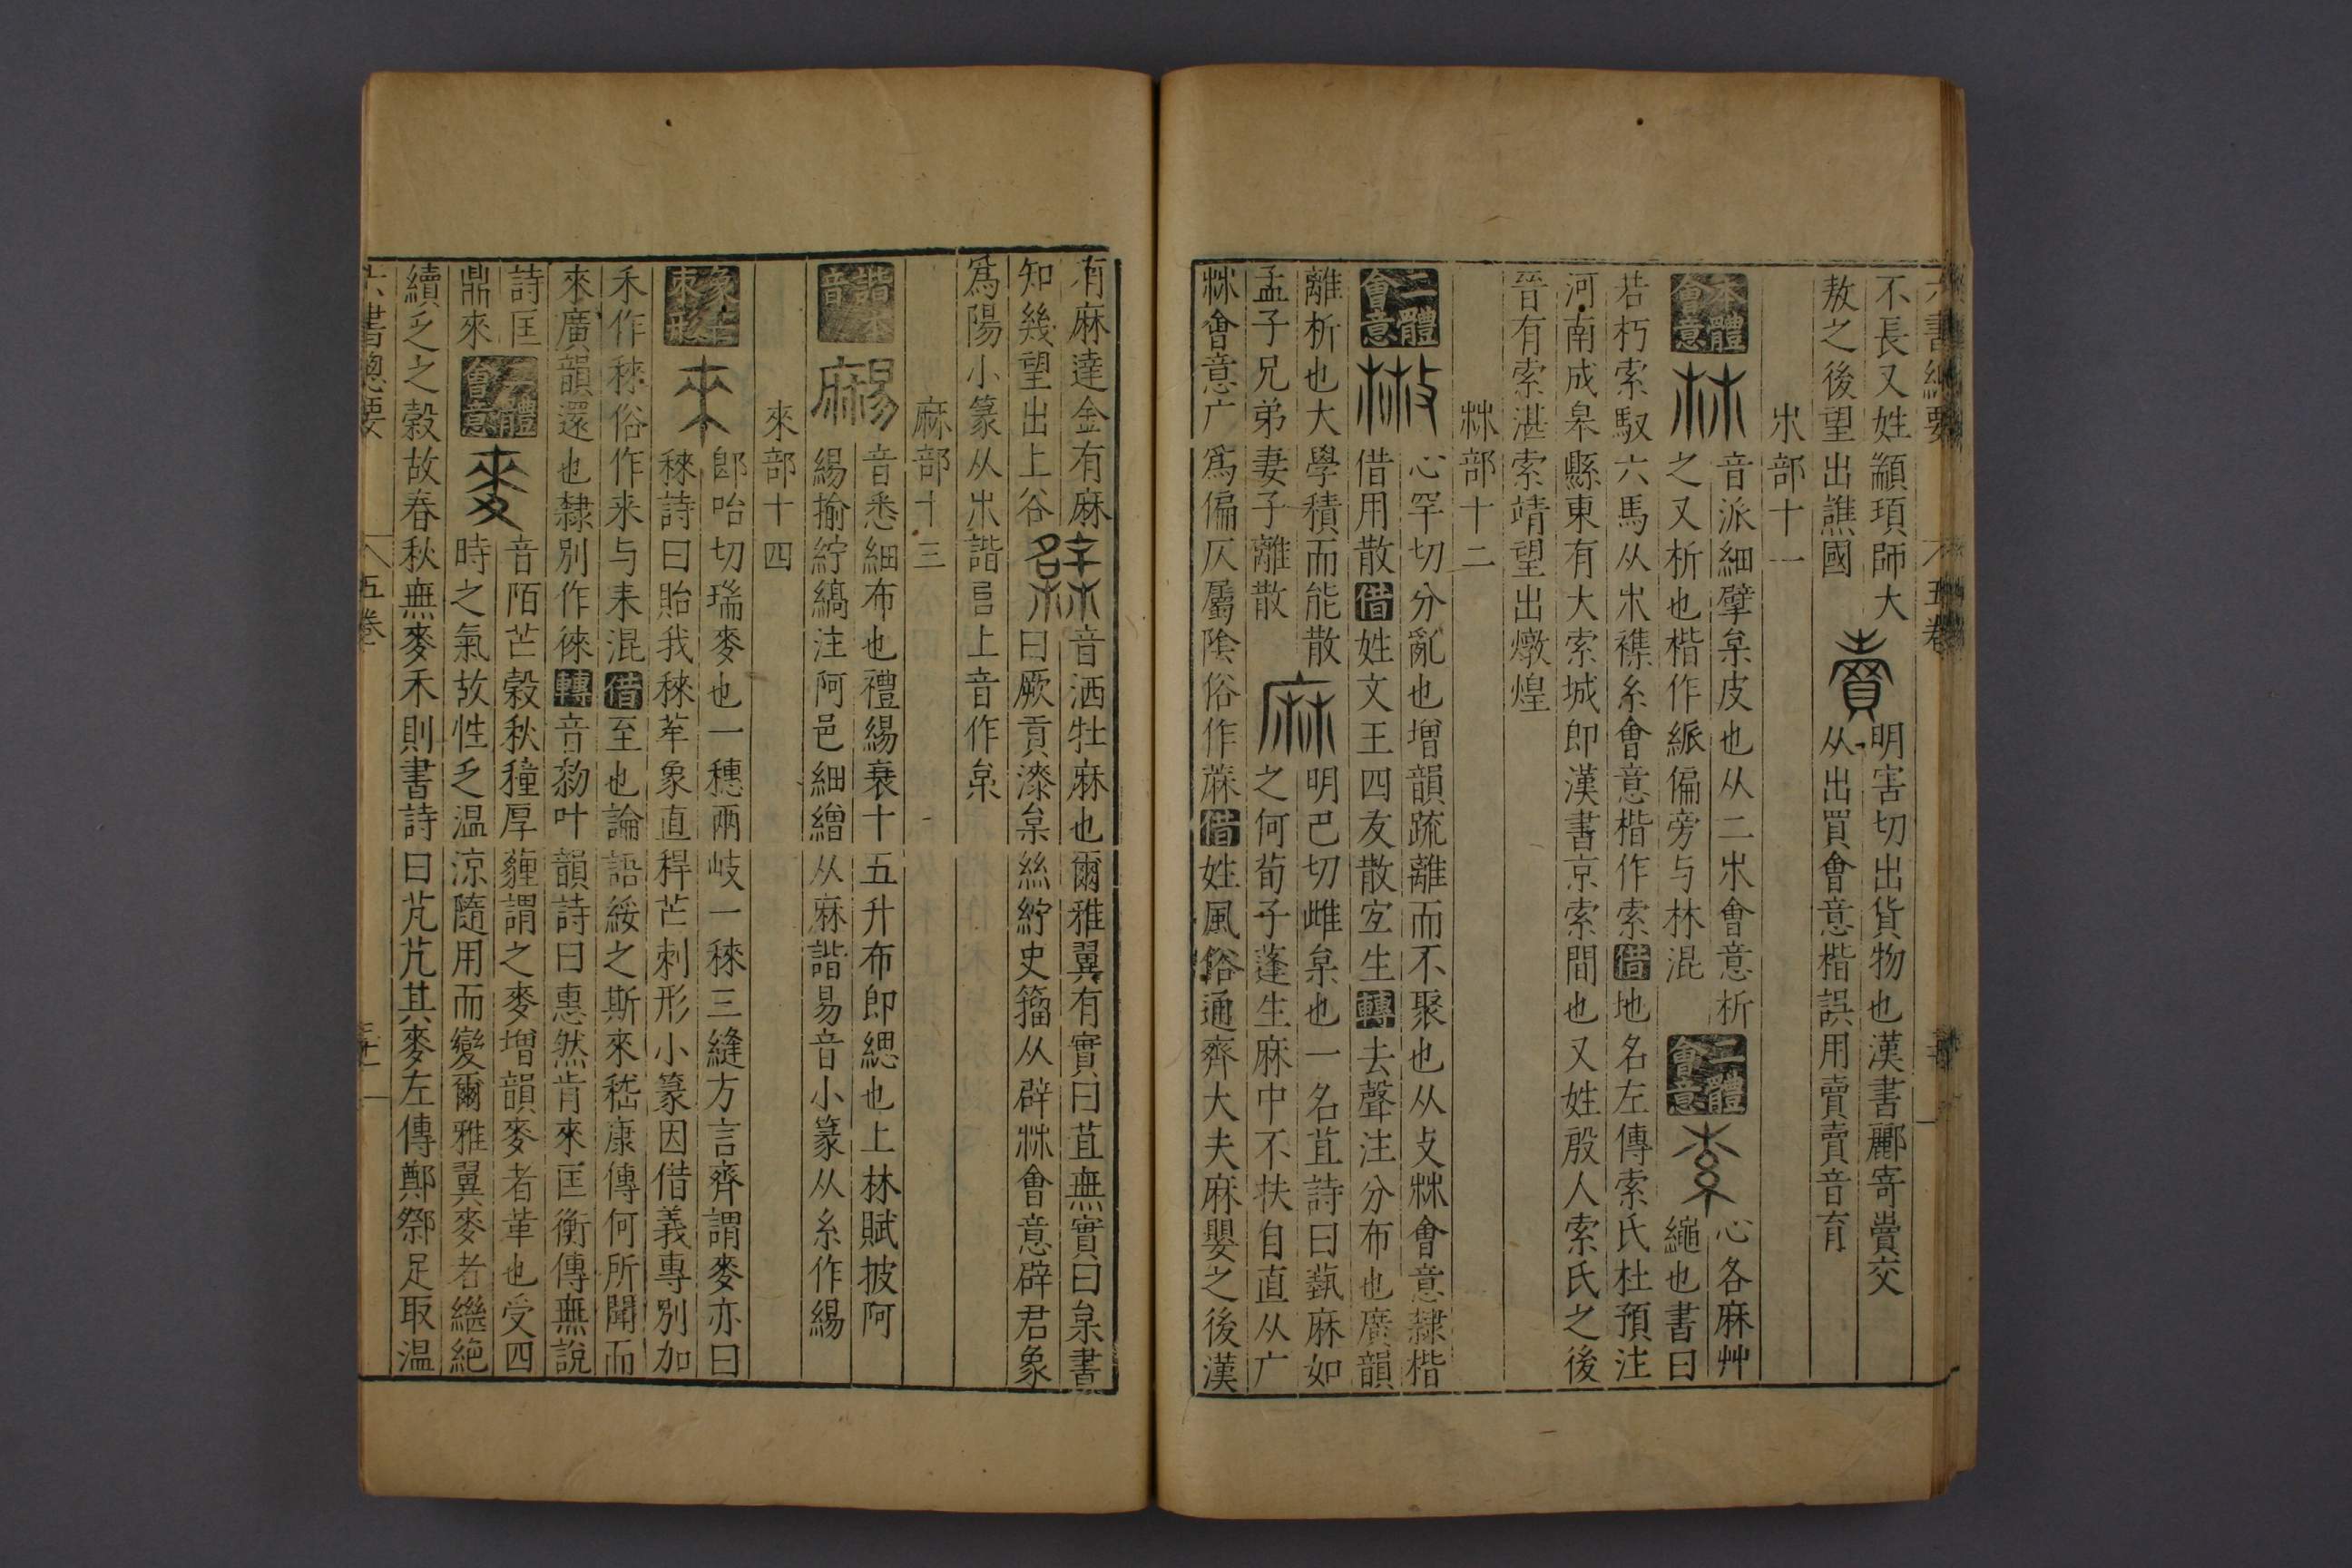 六書總要 五卷
不長又姓顓頊師大 賣 明害切出貨物也漢書酈寄賣交
敖之後望出譙國 从出買會意楷誤用賣賣音育
𣎳部十一
本體會意 𣏟 音派細擘枲皮也从二𣎳會意析
之又析也楷作𣂏偏旁与林混 二體會意 索 心各麻艸繩也書曰
若朽索馭六馬从𣎳襍糸會意楷作索借地名左傳索氏杜預注
河南成皋縣東有大索城即漢書京索間也又姓殷人索氏之後
晉有索湛索靖望出燉煌
𣏟部十二
二體會意 㪔 心罕切分亂也增韻疏離而不聚也从攴𣏟會意隸楷
借用散借姓文王四友散宜生轉去聲注分布也廣韻
離析也大學積而能散 麻 明巴切雌枲也一名苴詩曰蓺麻如
孟子兄弟妻子離散 之何荀子蓬生麻中不扶自直从广
𣏟會意广爲偏仄屬陰俗作蔴借姓風俗通齊大夫麻嬰之後漢
有麻達金有麻 音洒牡麻也爾雅翼有實曰苴無實曰枲書
知幾望出上谷 曰厥貢漆枲絲紵史籀从辟𣏟會意辟君象
爲陽小篆从𣎳諧㠯上音作枲
麻部十三
諧本音 音悉細布也禮緆衰十五升布即緦也上林賦披阿
緆揄紵縞注阿邑細繒从麻諧易音小篆从糸作緆
來部十四
來 郎咍切瑞麥也一穗兩岐一稑三縫方言齊謂麥亦曰
秾詩曰貽我秾牟象直稈芒刺形小篆因借義專別加
禾作秾俗作来与耒混借至也論語綏之斯來嵇康傳何所聞而
來廣韻還也隸別作徠轉音勑叶韻詩曰惠然肯來匡衡傳無說
詩匡鼎來 二體會意 麥 音陌芒穀秋穜厚薶謂之麥增韻麥者革也受四
時之氣故性乏温涼隨用而變爾雅翼麥者繼絕
續乏之穀故春秋無麥禾則書詩曰芃芃其麥左傳鄭祭足取温
六書總要 五卷